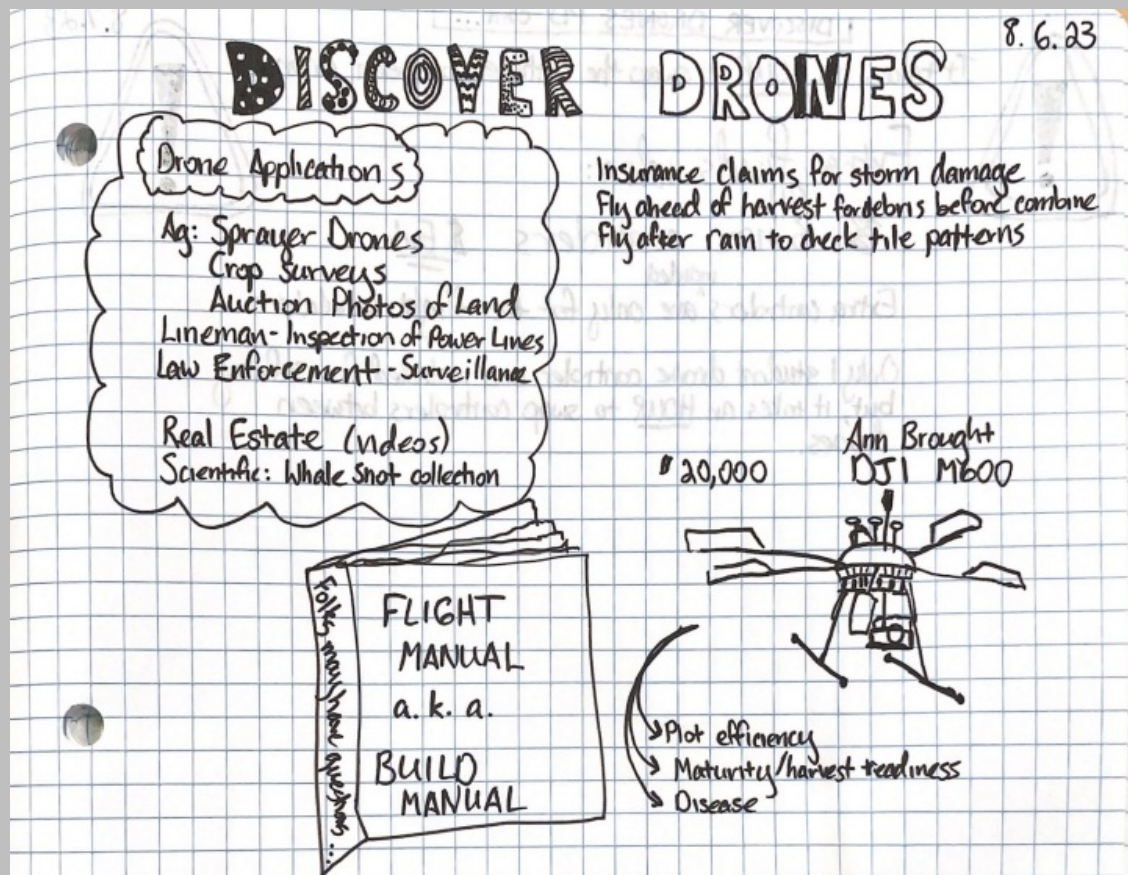 8.6.23
DISCOVER DRONES
Drone Applications
Ag: Sprayer Drones
Crop Surveys
Auction Photos of Land
Lineman - Inspection of Power Lines
Law Enforcement - Surveillance
Real Estate (videos)
Scientific: Whale Snot collection
Insurance claims for storm damage
Fly ahead of harvest for debris before combine
Fly after rain to check tile patterns
Ann Brought
$20,000 DJI M600
FLIGHT
MANUAL
a.k.a.
BUILD
MANUAL
questions...
Plot efficiency
Maturity/harvest readiness
Disease